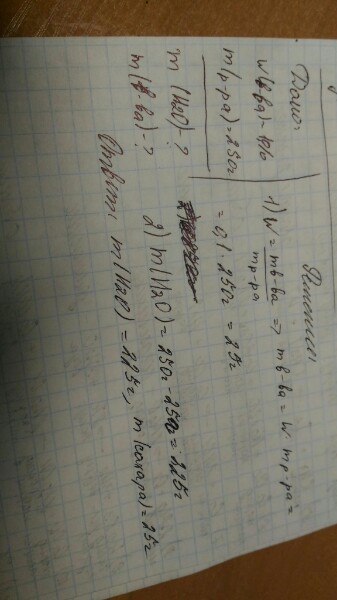 Дано:
w(в-ва) = 10%
m(р-ра) = 250г
m(H2O) - ?
m(в-ва) - ?
Решение:
1) W = mв-ва / mр-ра => mв-ва = W · mр-ра =
= 0,1 · 250г = 25г
2) m(H2O) = 250г - 25г = 225г
Ответ: m(H2O) = 225г, m(сахара) = 25г